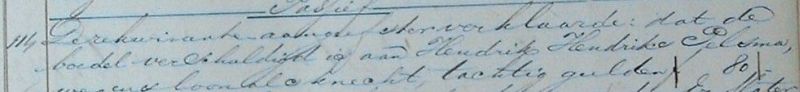 Passief
De rekwirante-aangeefster verklaarde: dat de
boedel verschuldigd is aan Hendrik Hendriks Pilsma,
wegens loon als knecht, tachtig gulden 80,-